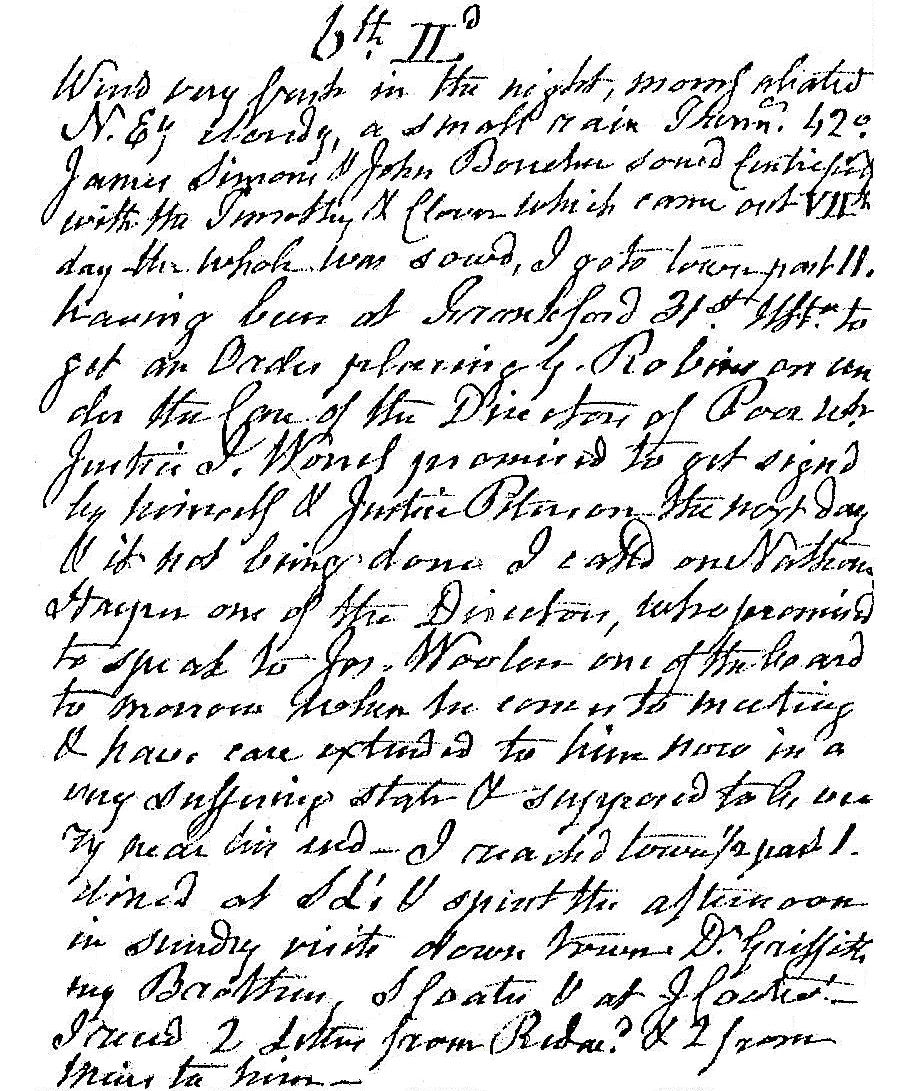 6th II.d
Wind very fresh in the night, morng abated
N. Ey cloudy, a small rain Therm. 42°.
James Simons & John Boucher sowed
with the Timothy & Clover which came out VIIth
day the whole was sowd, I go to town past 11.
having been at Frankford 31st Ulto to
get an Order placing G. Robinson un
der the Care of the Directors of Poor wch
Justice I. Worrel promised to get signd
by himself & Justice Peterson the next day
& it not being done I calld on Nathan
Harper one of the Directors, who promised
to speak to Jos. Woolen one of the board
to morrow when he comes to meeting
& have care extended to him now in a
very suffering state & supposed to be ve
ry near his end - I reached town 1/2 past 1.
dined at & spent the afternoon
in sundry visits down town Dr. Griffitts
my Brother, S Coates & at J Coates' -
I recd 2 Letters from & 2 from
to him -